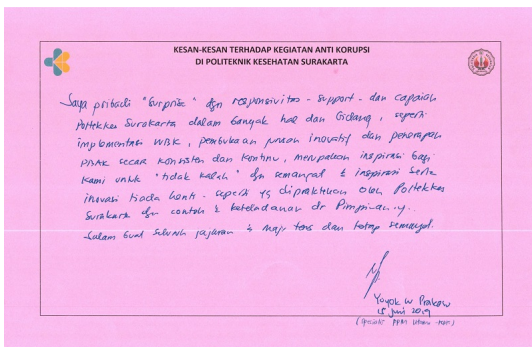 KESAN-KESAN TERHADAP KEGIATAN ANTI KORUPSI
DI POLITEKNIK KESEHATAN SURAKARTA
Saya pribadi "Surprise" dgn responsivitas - support - dan capaian
Poltekkes Surakarta dalam banyak hal dan bidang, seperti
implementasi WBK, pembukaan prodi inovatif dan penerapan
PBAK secara konsisten dan kontinu, merupakan inspirasi bagi
kami untuk "tidak kalah" dgn semangat & inspirasi serta
inovasi tiada henti - seperti yg dipraktikkan oleh Poltekkes
Surakarta dgn contoh & keteladanan dr Pimpinannya.
Salam buat seluruh jajaran & maju terus dan tetap semangat.
Yoyok W
15 Juni 2019